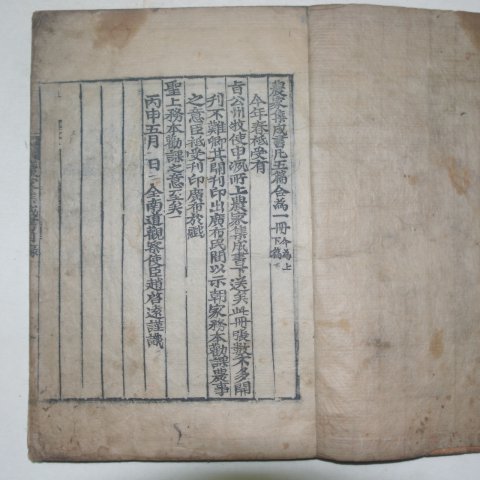 農家集成書凡五篇合為一冊今為上下篇
今年春祗受有
旨公州牧使申洬所上農家集成書下送矣此冊張數不多開
刊不難卿其開刊印出廣布民間以示朝家務本勸課農事
之意臣祗受刊印廣布於賦
聖上務本勸課之意至矣
丙申五月 日全南道觀察使臣趙啓遠謹識